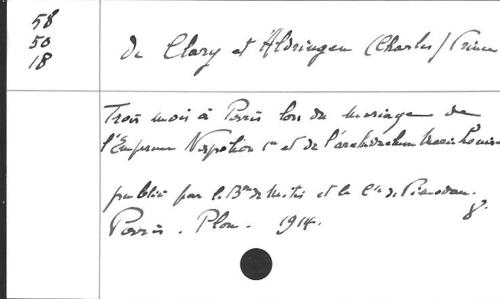 58
50
18
de Clary et Aldringen (Charles) Prince
Trois mois à Paris lors du mariage de
l'Empereur Napoléon 1er et de l'archiduchesse Marie Louise
publié par le Bon de Mitis et le Cte de Pimodan.
Paris. Plon. 1914.
8.